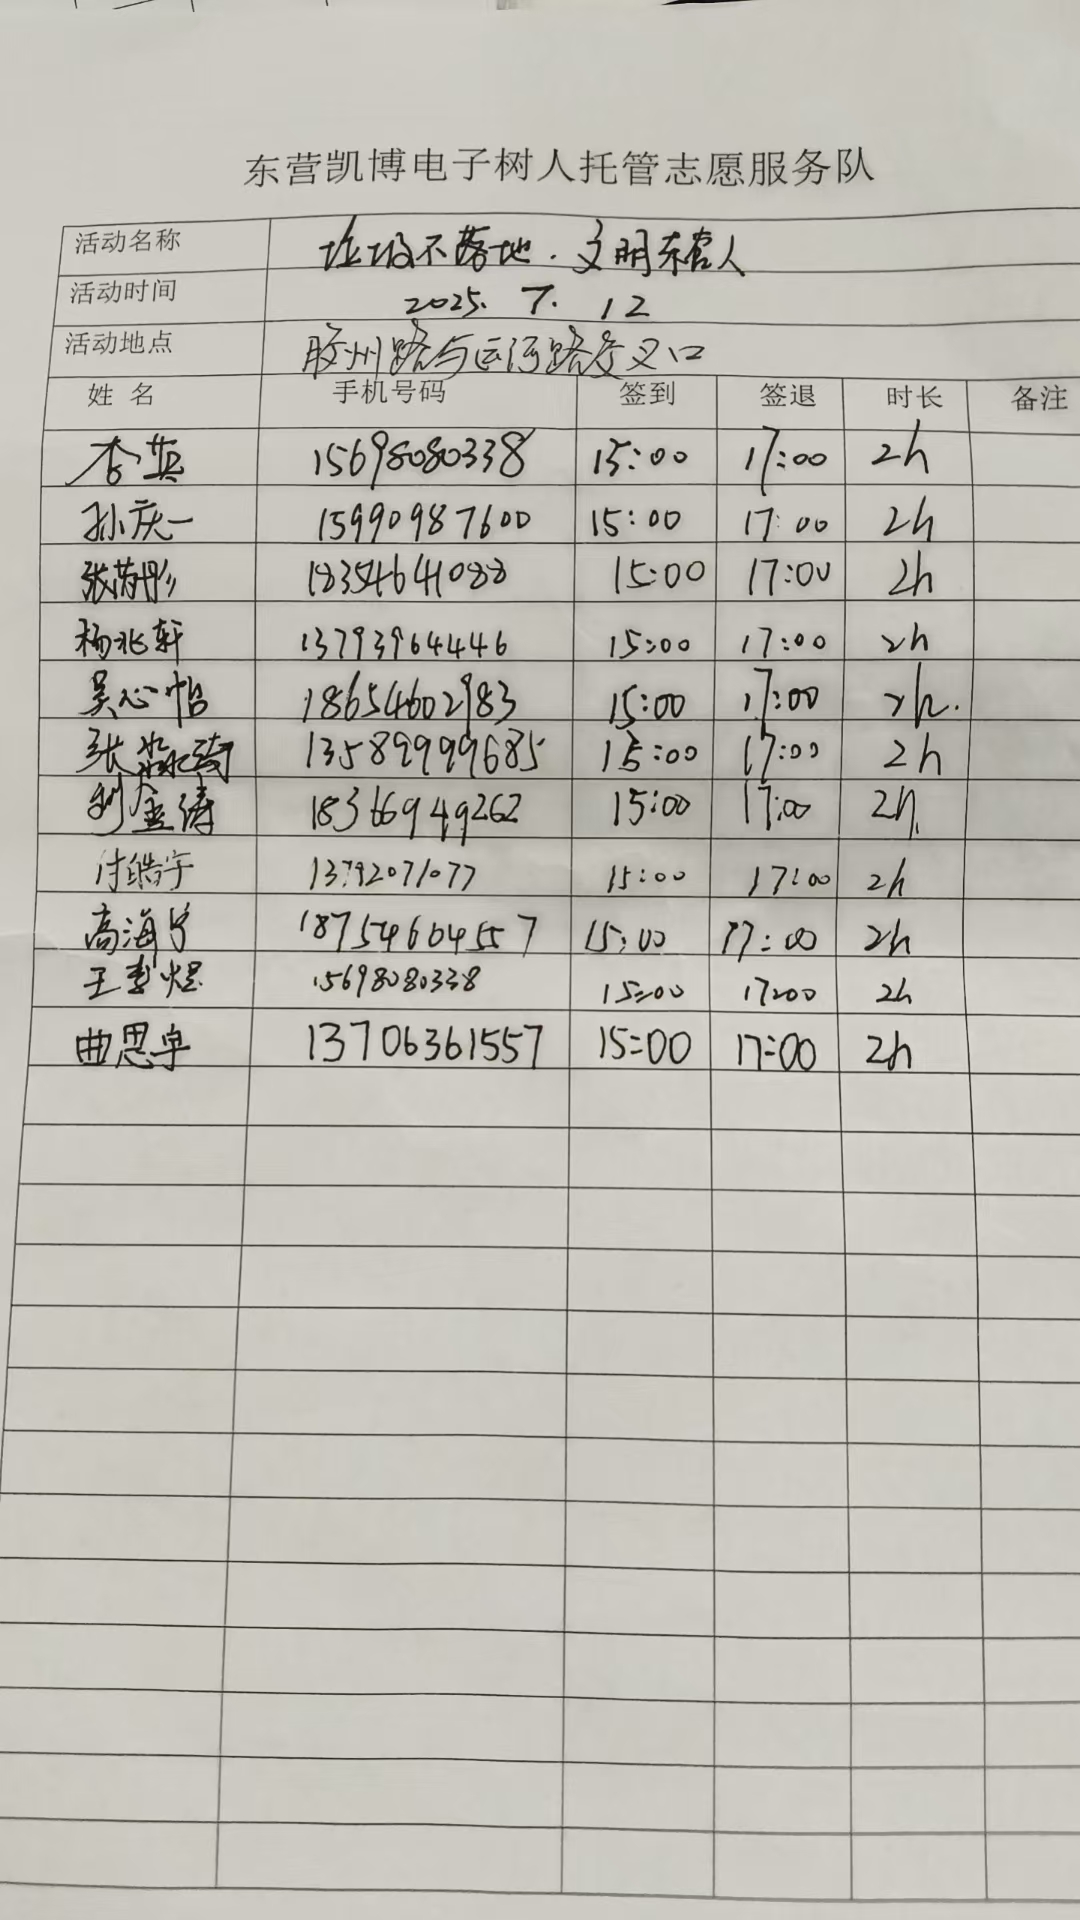 东营凯博电子树人托管志愿服务队
活动名称 垃圾不落地.文明东营人
活动时间 2025.7.12
活动地点 胶州路与运河路交叉口
姓名 手机号码 签到 签退 时长 备注
李英 15698080338 15:00 17:00 2h
孙庆一 15990987600 15:00 17:00 2h
张芮彤 18354641088 15:00 17:00 2h
杨兆轩 13793964446 15:00 17:00 2h
吴心怡 18654602983 15:00 17:00 2h.
张淼琦 13589999685 15:00 17:00 2h
刘金涛 18366949262 15:00 17:00 2h
付皓宇 13792071077 15:00 17:00 2h
高海宁 18754604557 15:00 17:00 2h
王 15698080338 15:00 17:00 2h
曲思卓 13706361557 15:00 17:00 2h